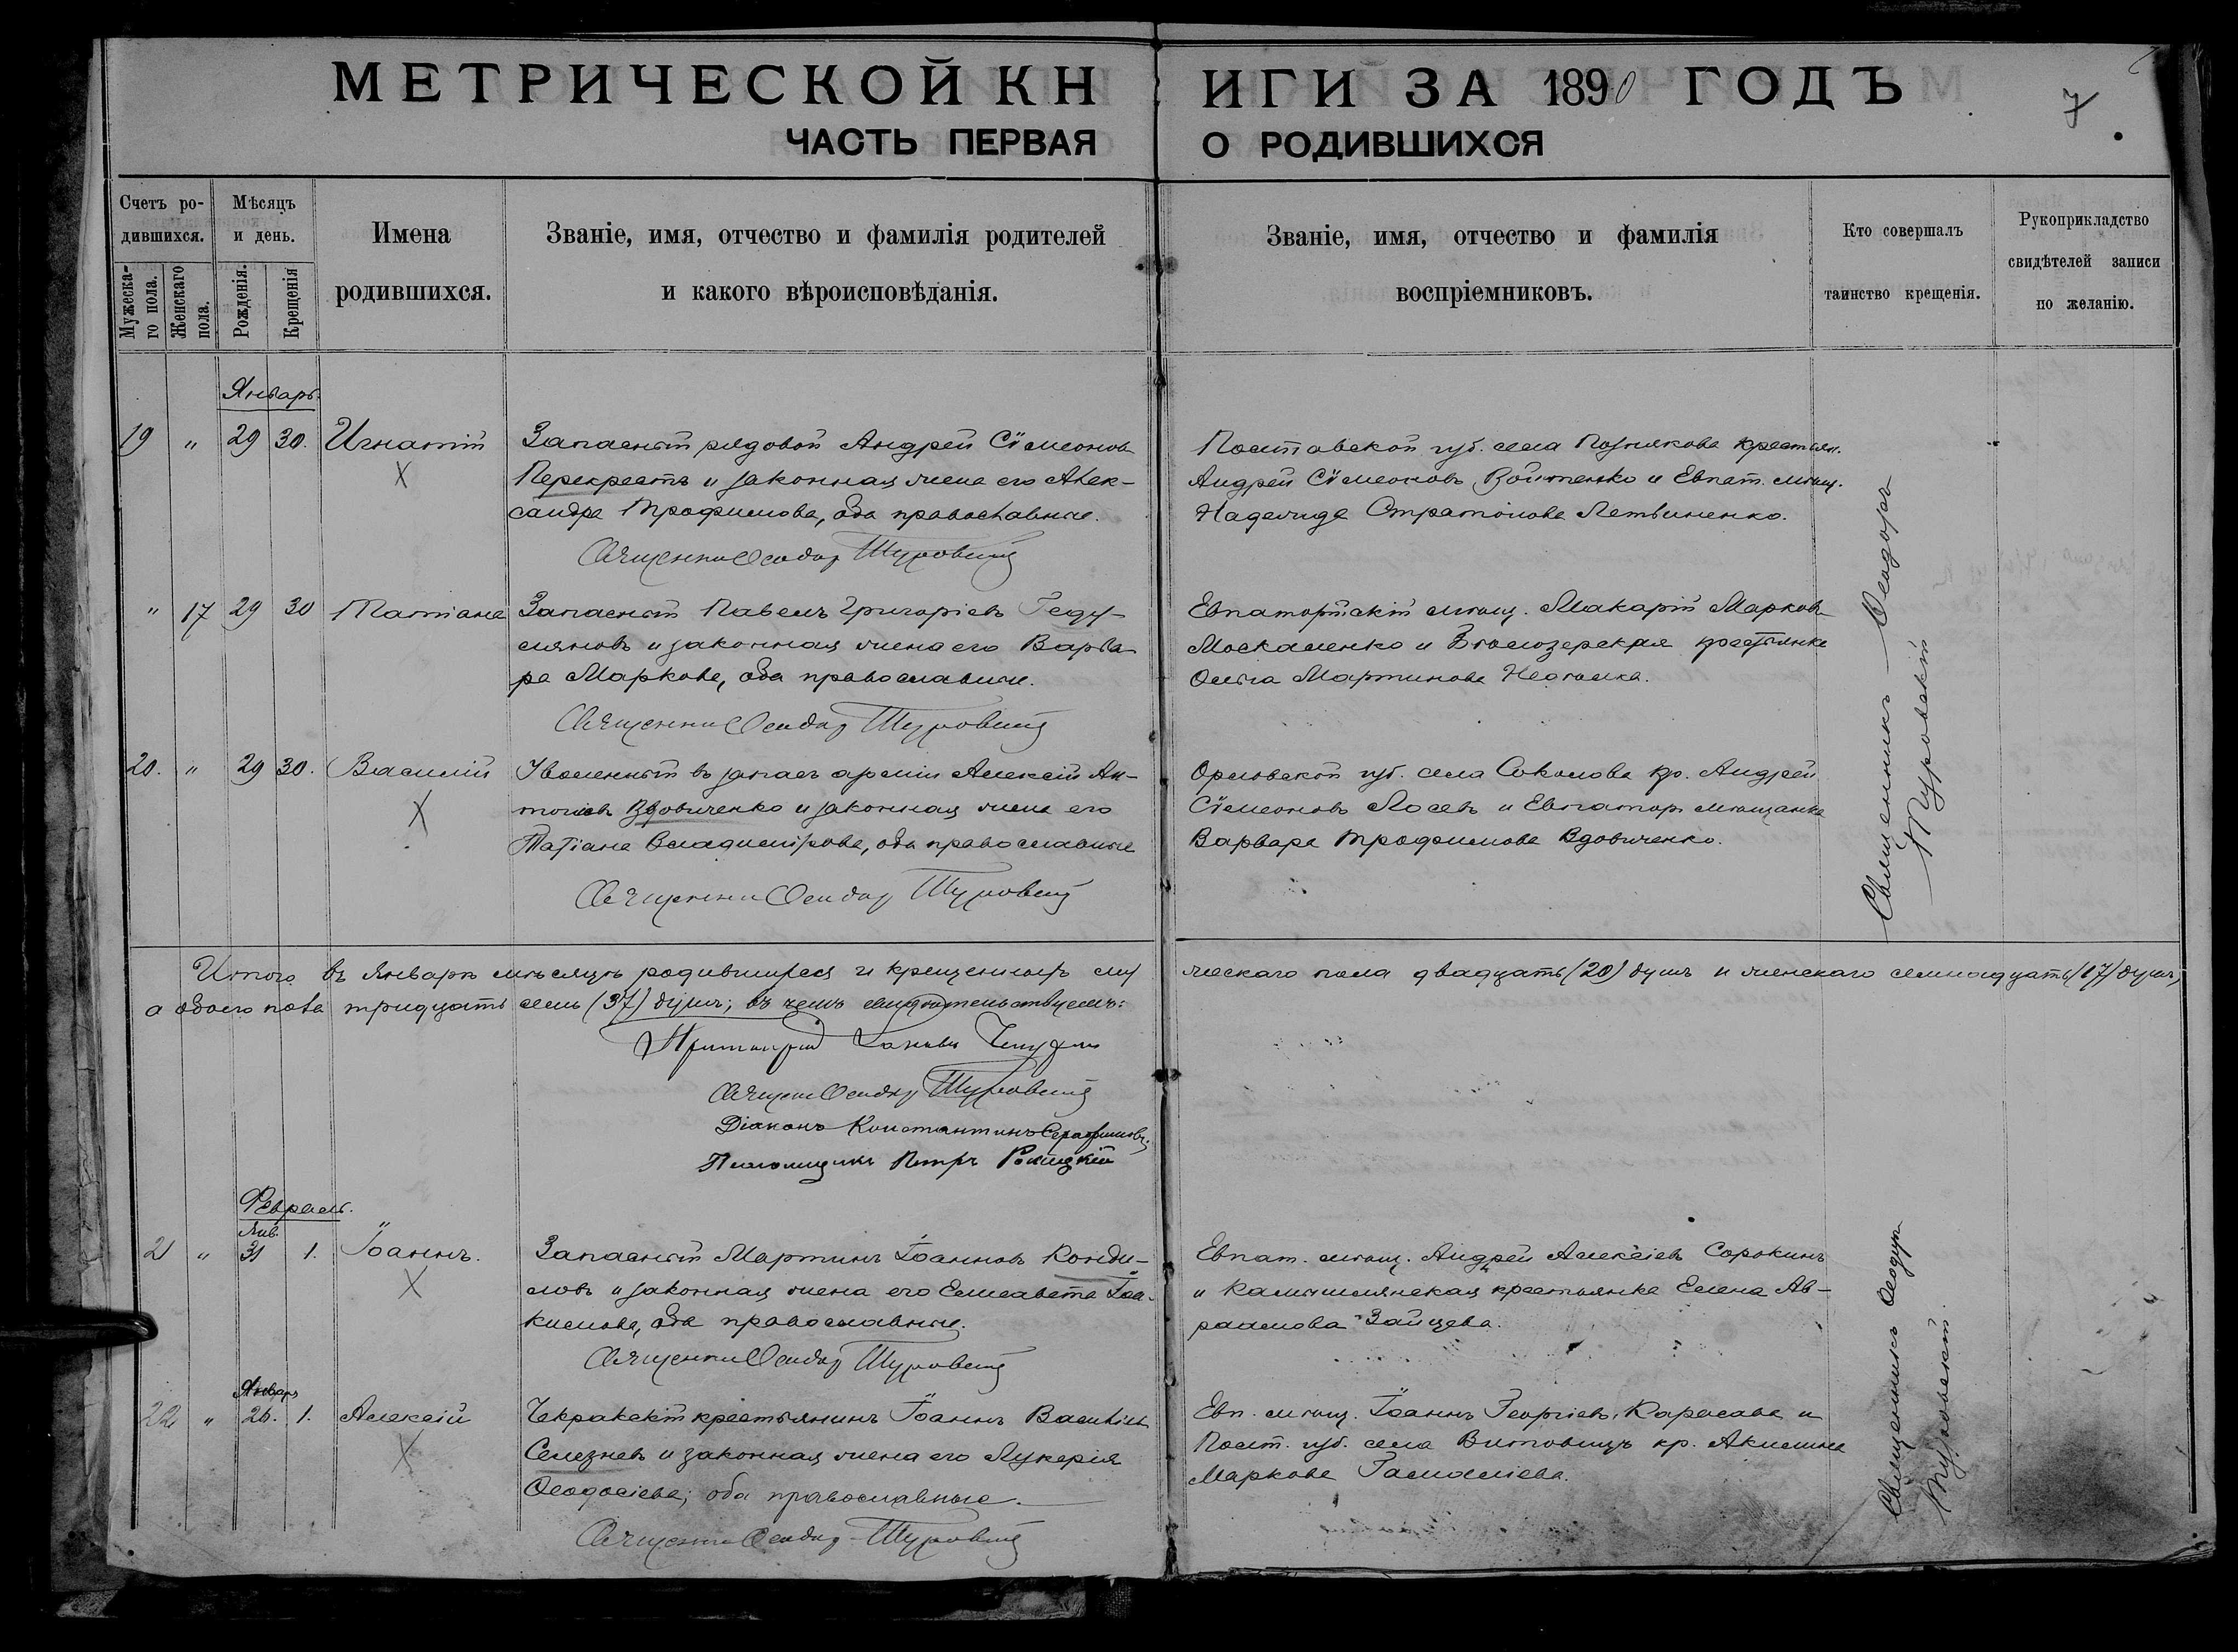 МЕТРИЧЕСКОЙ КНИГИ ЗА 1890 ГОДЪ
7
ЧАСТЬ ПЕРВАЯ О РОДИВШИХСЯ
Счетъ ро-
дившихся.
Мужеска-
го пола.
Женскаго
пола.
Мѣсяцъ
и день.
Рожденія.
Крещенія
Имена
родившихся.
Званіе, имя, отчество и фамилія родителей
и какого вѣроисповѣданія.
Званіе, имя, отчество и фамилія
воспріемниковъ.
Кто совершалъ
таинство крещенія.
Рукоприкладство
свидѣтелей записи
по желанію.
Январь.
19 " 29 30. Игнатій
Запасный рядовой Андрей Сѵмеоновъ
Перекрестъ и законная жена его Алек-
сандра Трофимова, оба православные.
Священникъ Ѳеодоръ Туровскій
Полтавской губ. села Познякова крестьян.
Андрей Сѵмеоновъ Войтенко и Евпат. мѣщ.
Надежда Стратонова Летвиненко.
" 17 29 30 Татіана
Запасный Павелъ Григоріевъ Геду-
сляновъ и законная жена его Варва-
ра Маркова, оба православные.
Священникъ Ѳеодоръ Туровскій
Евпаторійскій мѣщ. Макарій Марковъ
Москаленко и Бѣлозерская крестьянка
Ольга Мартинова
20. " 29 30. Василій
Уволенный въ запасъ арміи Алексій Ан-
тоніевъ Вдовиченко и законная жена его
Татіана Владимірова, оба православные
Священникъ Ѳеодоръ Туровскій
Орловской губ. села Соколова кр. Андрей
Сѵмеоновъ Лосевъ и Евпатор. мѣщанка
Варвара Трофимова Вдовиченко.
Священникъ Ѳеодоръ
Туровскій
Итого въ Январѣ мѣсяцѣ родившихся и крещенныхъ мужескаго пола двадцать (20) душъ и женскаго семнадцать (17) душъ,
а обоего пола тридцать семь (37) душъ; въ чемъ свидѣтельствуемъ:
Протоіерей Іаковъ
Священникъ Ѳеодоръ Туровскій
Діаконъ Константинъ Серафимовъ
Псаломщикъ Петръ Рокицкій
Февраль.
Янв.
21 " 31 1. Іоаннъ.
Запасный Мартинъ Іоанновъ Конди-
ловъ и законная жена его Елисавета Іоа-
кимова, оба православные.
Священникъ Ѳеодоръ Туровскій
Евпат. мѣщ. Андрей Алексіевъ Сорокинъ
и Камышлянская крестьянка Елена Ав-
раамова Зайцева.
Январь
22 " 26. 1. Алексій
Чекракскій крестьянинъ Іоаннъ Васильевъ
Селезневъ и законная жена его Лукерія
Ѳеодосіева; оба православные.
Священникъ Ѳеодоръ Туровскій
Евп. мѣщ. Іоаннъ Георгіевъ Карасавъ и
Полт. губ. села Витовицъ кр. Акилина
Маркова
Священникъ Ѳеодоръ
Туровскій.